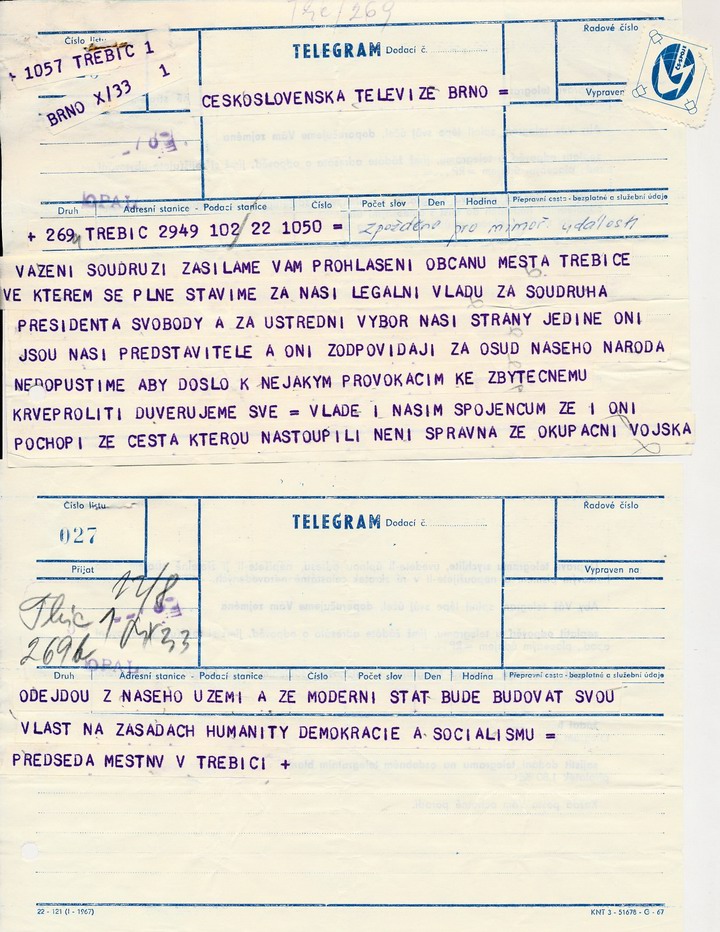 Třc/269
Číslo listu
TELEGRAM Dodací č.
Řadové číslo
+ 1057 TREBIC 1
BRNO X/33 1
Vypraven
ČS·SPOJE
CESKOSLOVENSKA TELEVIZE BRNO =
OPAL
Druh Adresní stanice - Podací stanice Číslo Počet slov Den Hodina Přepravní cesta - bezplatné a služební údaje
+ 269 TREBIC 2949 102/22 1050 = zpožděno pro mimoř. události
VAZENI SOUDRUZI ZASILAME VAM PROHLASENI OBCANU MESTA TREBICE
VE KTEREM SE PLNE STAVIME ZA NASI LEGALNI VLADU ZA SOUDRUHA
PRESIDENTA SVOBODY A ZA USTREDNI VYBOR NASI STRANY JEDINE ONI
JSOU NASI PREDSTAVITELE A ONI ZODPOVIDAJI ZA OSUD NASEHO NARODA
NEDOPUSTIME ABY DOSLO K NEJAKYM PROVOKACIM KE ZBYTECNEMU
KRVEPROLITI DUVERUJEME SVE = VLADE I NASIM SPOJENCUM ZE I ONI
POCHOPI ZE CESTA KTEROU NASTOUPILI NENI SPRAVNA ZE OKUPACNI VOJSKA
Číslo listu
TELEGRAM Dodací č.
Řadové číslo
027
Přijat
Vypraven na
22/8
269b
OPAL
Druh Adresní stanice - Podací stanice Číslo Počet slov Den Hodina Přepravní cesta - bezplatné a služební údaje
ODEJDOU Z NASEHO UZEMI A ZE MODERNI STAT BUDE BUDOVAT SVOU
VLAST NA ZASADACH HUMANITY DEMOKRACIE A SOCIALISMU =
PREDSEDA MESTNV V TREBICI +
22 - 121 (I - 1967)
KNT 3 - 51678 - G - 67